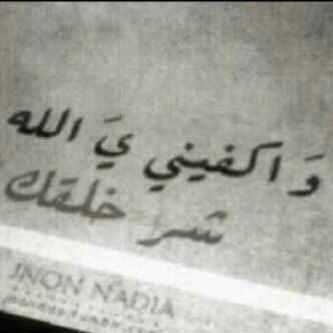 وَاكفيني يَ الله
شر خلقك
JNON NADIA